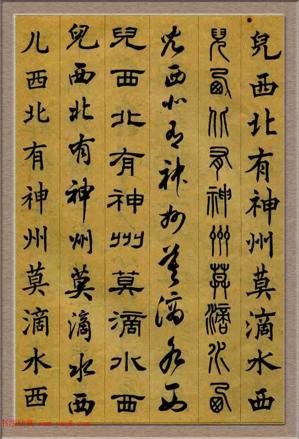 兒西北有神州莫滴水西
兒西北有神州莫滴水西
兒西北有神州莫滴水西
兒西北有神州莫滴水西
兒西北有神州莫滴水西
儿西北有神州莫滴水西